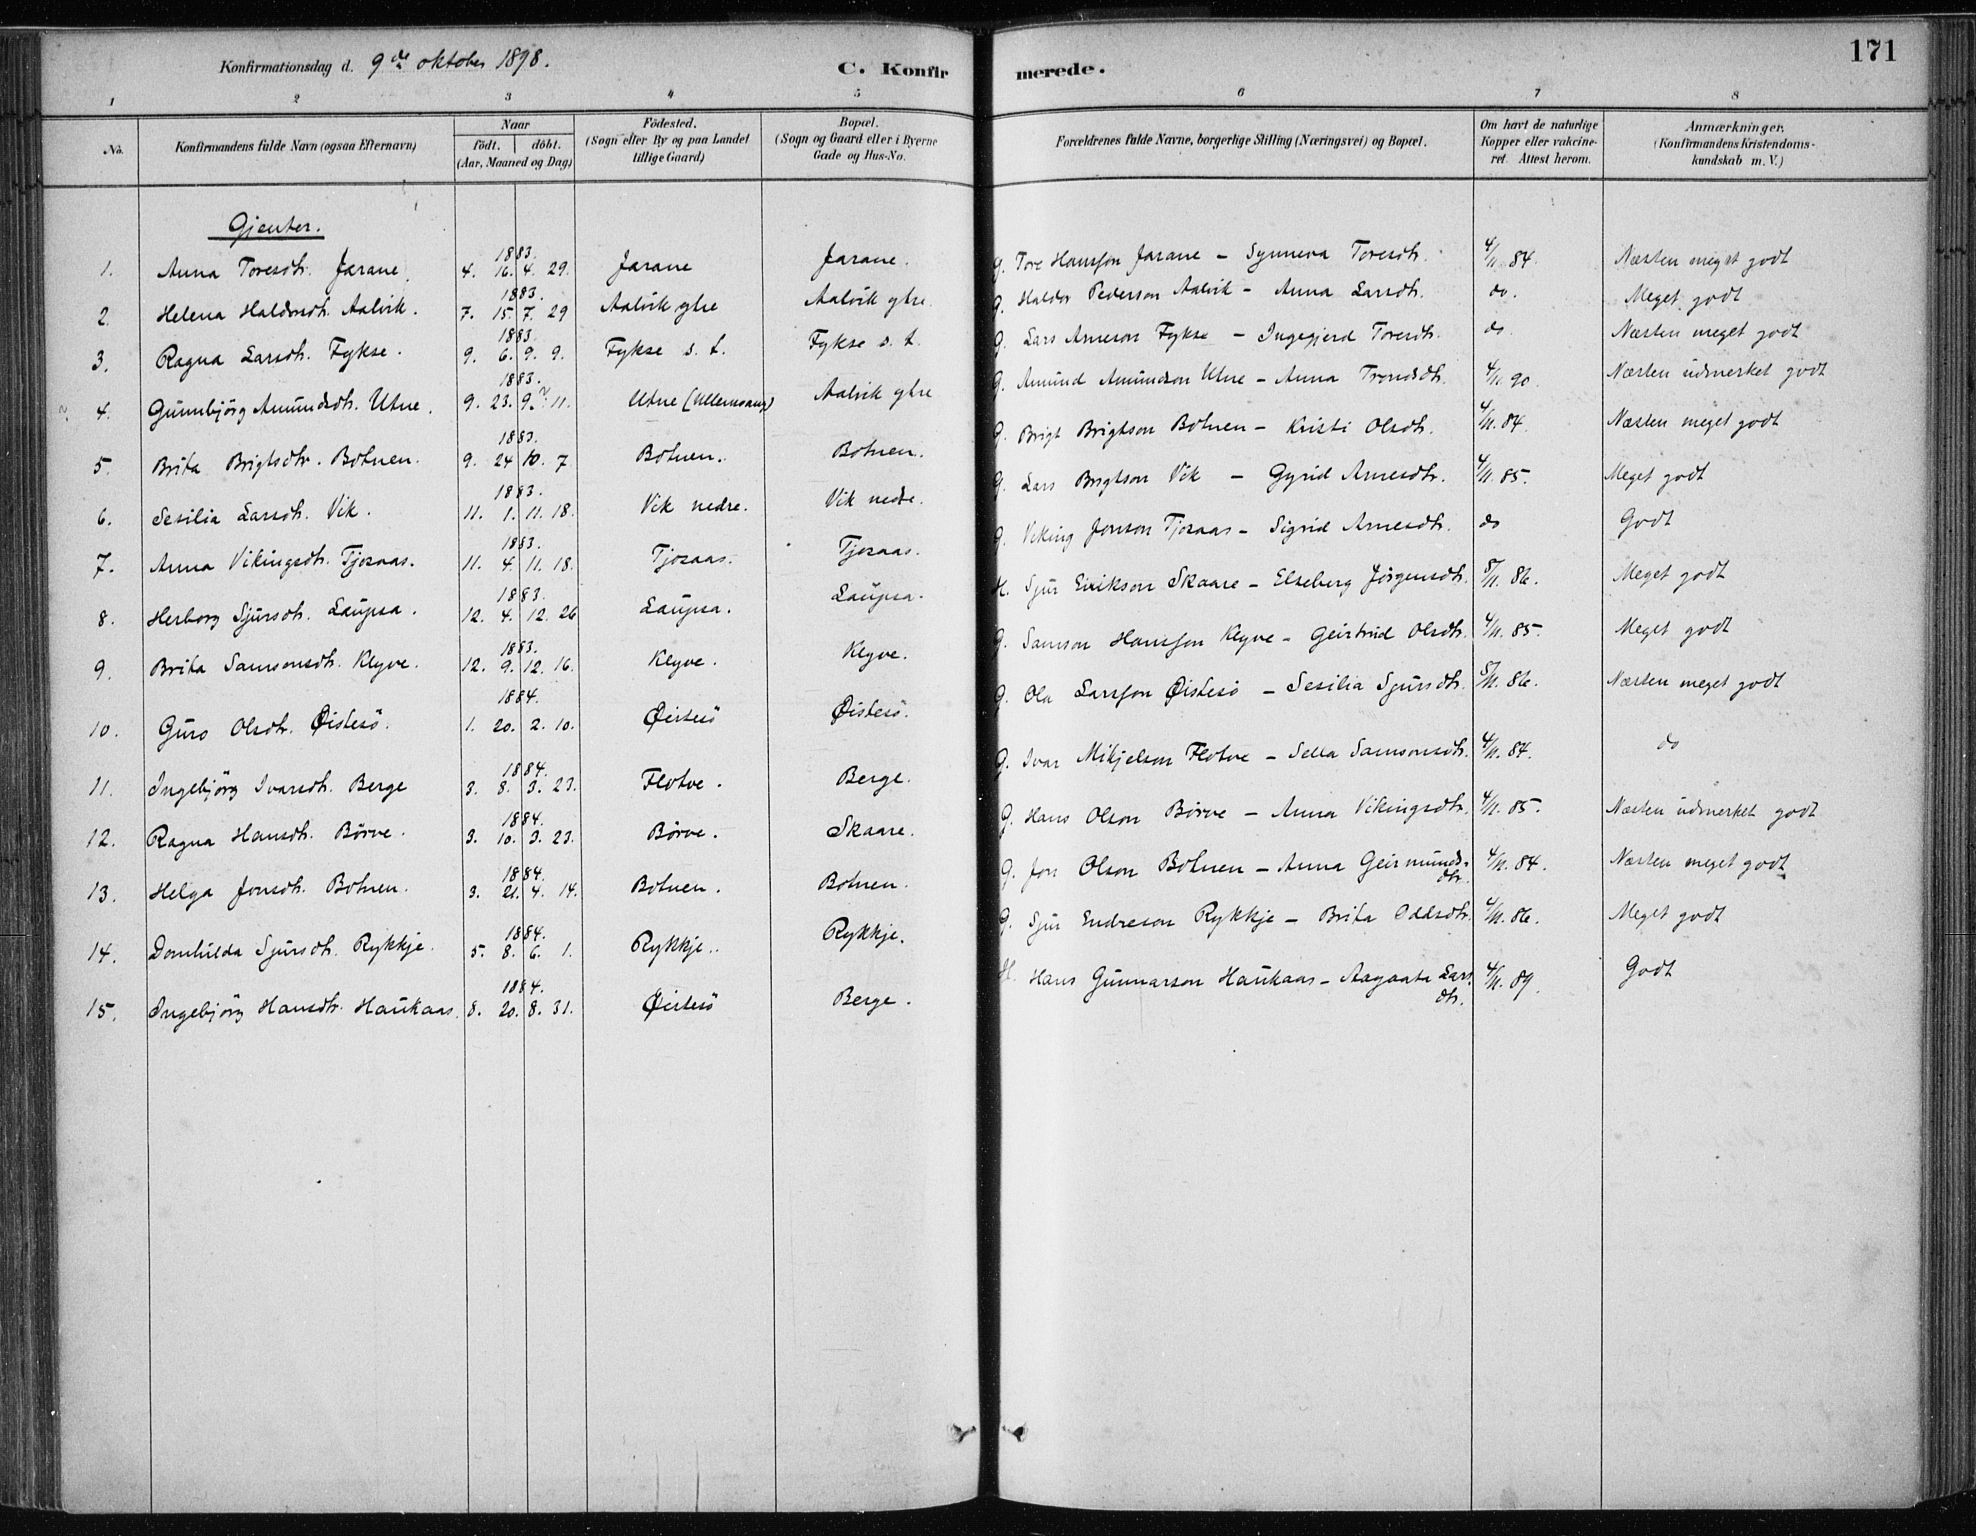 171
Konfirmationsdag d. 9de oktober 1898.
C. Konfir merede.
1 2 3 4 5 6 7 8
No. Konfirmandens fulde Navn (ogsaa Efternavn) Naar födt. döbt. (Aar, Maaned og Dag) Födested. (Sogn eller By og paa Landet tillige Gaard) Bopæl. (Sogn og Gaard eller i Byerne Gade og Hus-No. Forældrenes fulde Navne, borgerlige Stilling (Næringsvei) og Bopæl. Om havt de naturlige Kopper eller vakcineret. Attest herom. Anmærkninger. (Konfirmandens Kristendomskundskab m. V.)
Gjenter.
1. Anna Toresdtr. Jarane. 1883. 4. 16. 4. 29. Jarane Jarane. G. Tore Hansson Jarane – Synneva Toresdtr. 4/11. 84. Næsten meget godt
2. Helena Haldorsdtr. Aalvik. 1883. 7. 15. 7. 29 Aalvik ytre Aalvik ytre. G. Haldor Pederson Aalvik – Anna Larsdtr. do. Meget godt
3. Ragna Larsdtr. Fykse. 1883. 9. 6. 9. 9. Fykse s. t. Fykse s. t. G. Lars Arneson Fykse – Ingegjerd Toresdtr. do Næsten meget godt
4. Gunnbjörg Amundsdtr. Utne. 1883. 9. 23. 9. 11. Utne (Ullensvang) Aalvik ytre G. Amund Amundson Utne – Anna Trondsdtr. 4/11. 90. Næsten udmerket godt
5. Brita Brigtsdtr. Botnen. 1883. 9. 24 10. 7. Botnen. Botnen. G. Brigt Brigtson Botnen – Kristi Olsdtr. 4/11. 84. Næsten meget godt
6. Sesilia Larsdtr. Vik. 1883. 11. 1. 11. 18. Vik nedre. Vik nedre. G. Lars Brigtson Vik – Gyrid Arnesdtr. 4/11. 85. Meget godt
7. Anna Vikingsdtr. Tjosaas. 1883. 11. 4. 11. 18. Tjosaas. Tjosaas. G. Viking Jonson Tjosaas – Sigrid Arnesdtr. do Godt
8. Herborg Sjursdtr. Laupsa. 1883. 12. 4. 12. 26 Laupsa. Laupsa. H. Sjur Eirikson Skaare – Elseberg Jørgensdtr. 5/11. 86. Meget godt
9. Brita Samsonsdtr. Klyve. 1883. 12. 9. 12. 16. Klyve. Klyve. G. Samson Hansson Klyve – Geirtrud Olsdtr. 4/11. 85. Meget godt
10. Guro Olsdtr. Øistesö. 1884. 1. 20. 2. 10. Øistesö Øistesö. G. Ola Larsson Øistesö – Sesilia Sjursdtr. 5/11. 86. Næsten meget godt
11. Ingebjörg Ivarsdtr. Berge 1884. 3. 8. 3. 23. Flotve. Berge. G. Ivar Mikjelson Flotve – Sella Samsonsdtr. 4/11. 84. do
12. Ragna Hansdtr. Börve. 1884. 3. 10. 3. 23. Börve. Skaare. G. Hans Olson Börve – Anna Vikingsdtr. 4/11. 85. Næsten udmerket godt
13. Helga Jonsdtr. Botnen. 1884. 3. 21. 4. 14. Botnen. Botnen. G. Jon Olson Botnen – Anna Geirmundsdtr. 4/11. 84. Næsten meget godt
14. Domhilda Sjursdtr. Rykkje. 1884. 5. 8. 6. 1. Rykkje. Rykkje. G. Sjur Endreson Rykkje – Brita Oddsdtr. 4/11. 86. Meget godt
15. Ingebjörg Hansdtr. Haukaas. 1884. 8. 20. 8. 31. Øistesö Berge. H. Hans Gunnarson Haukaas – Aagaata Larsdtr. 4/11. 89. Godt